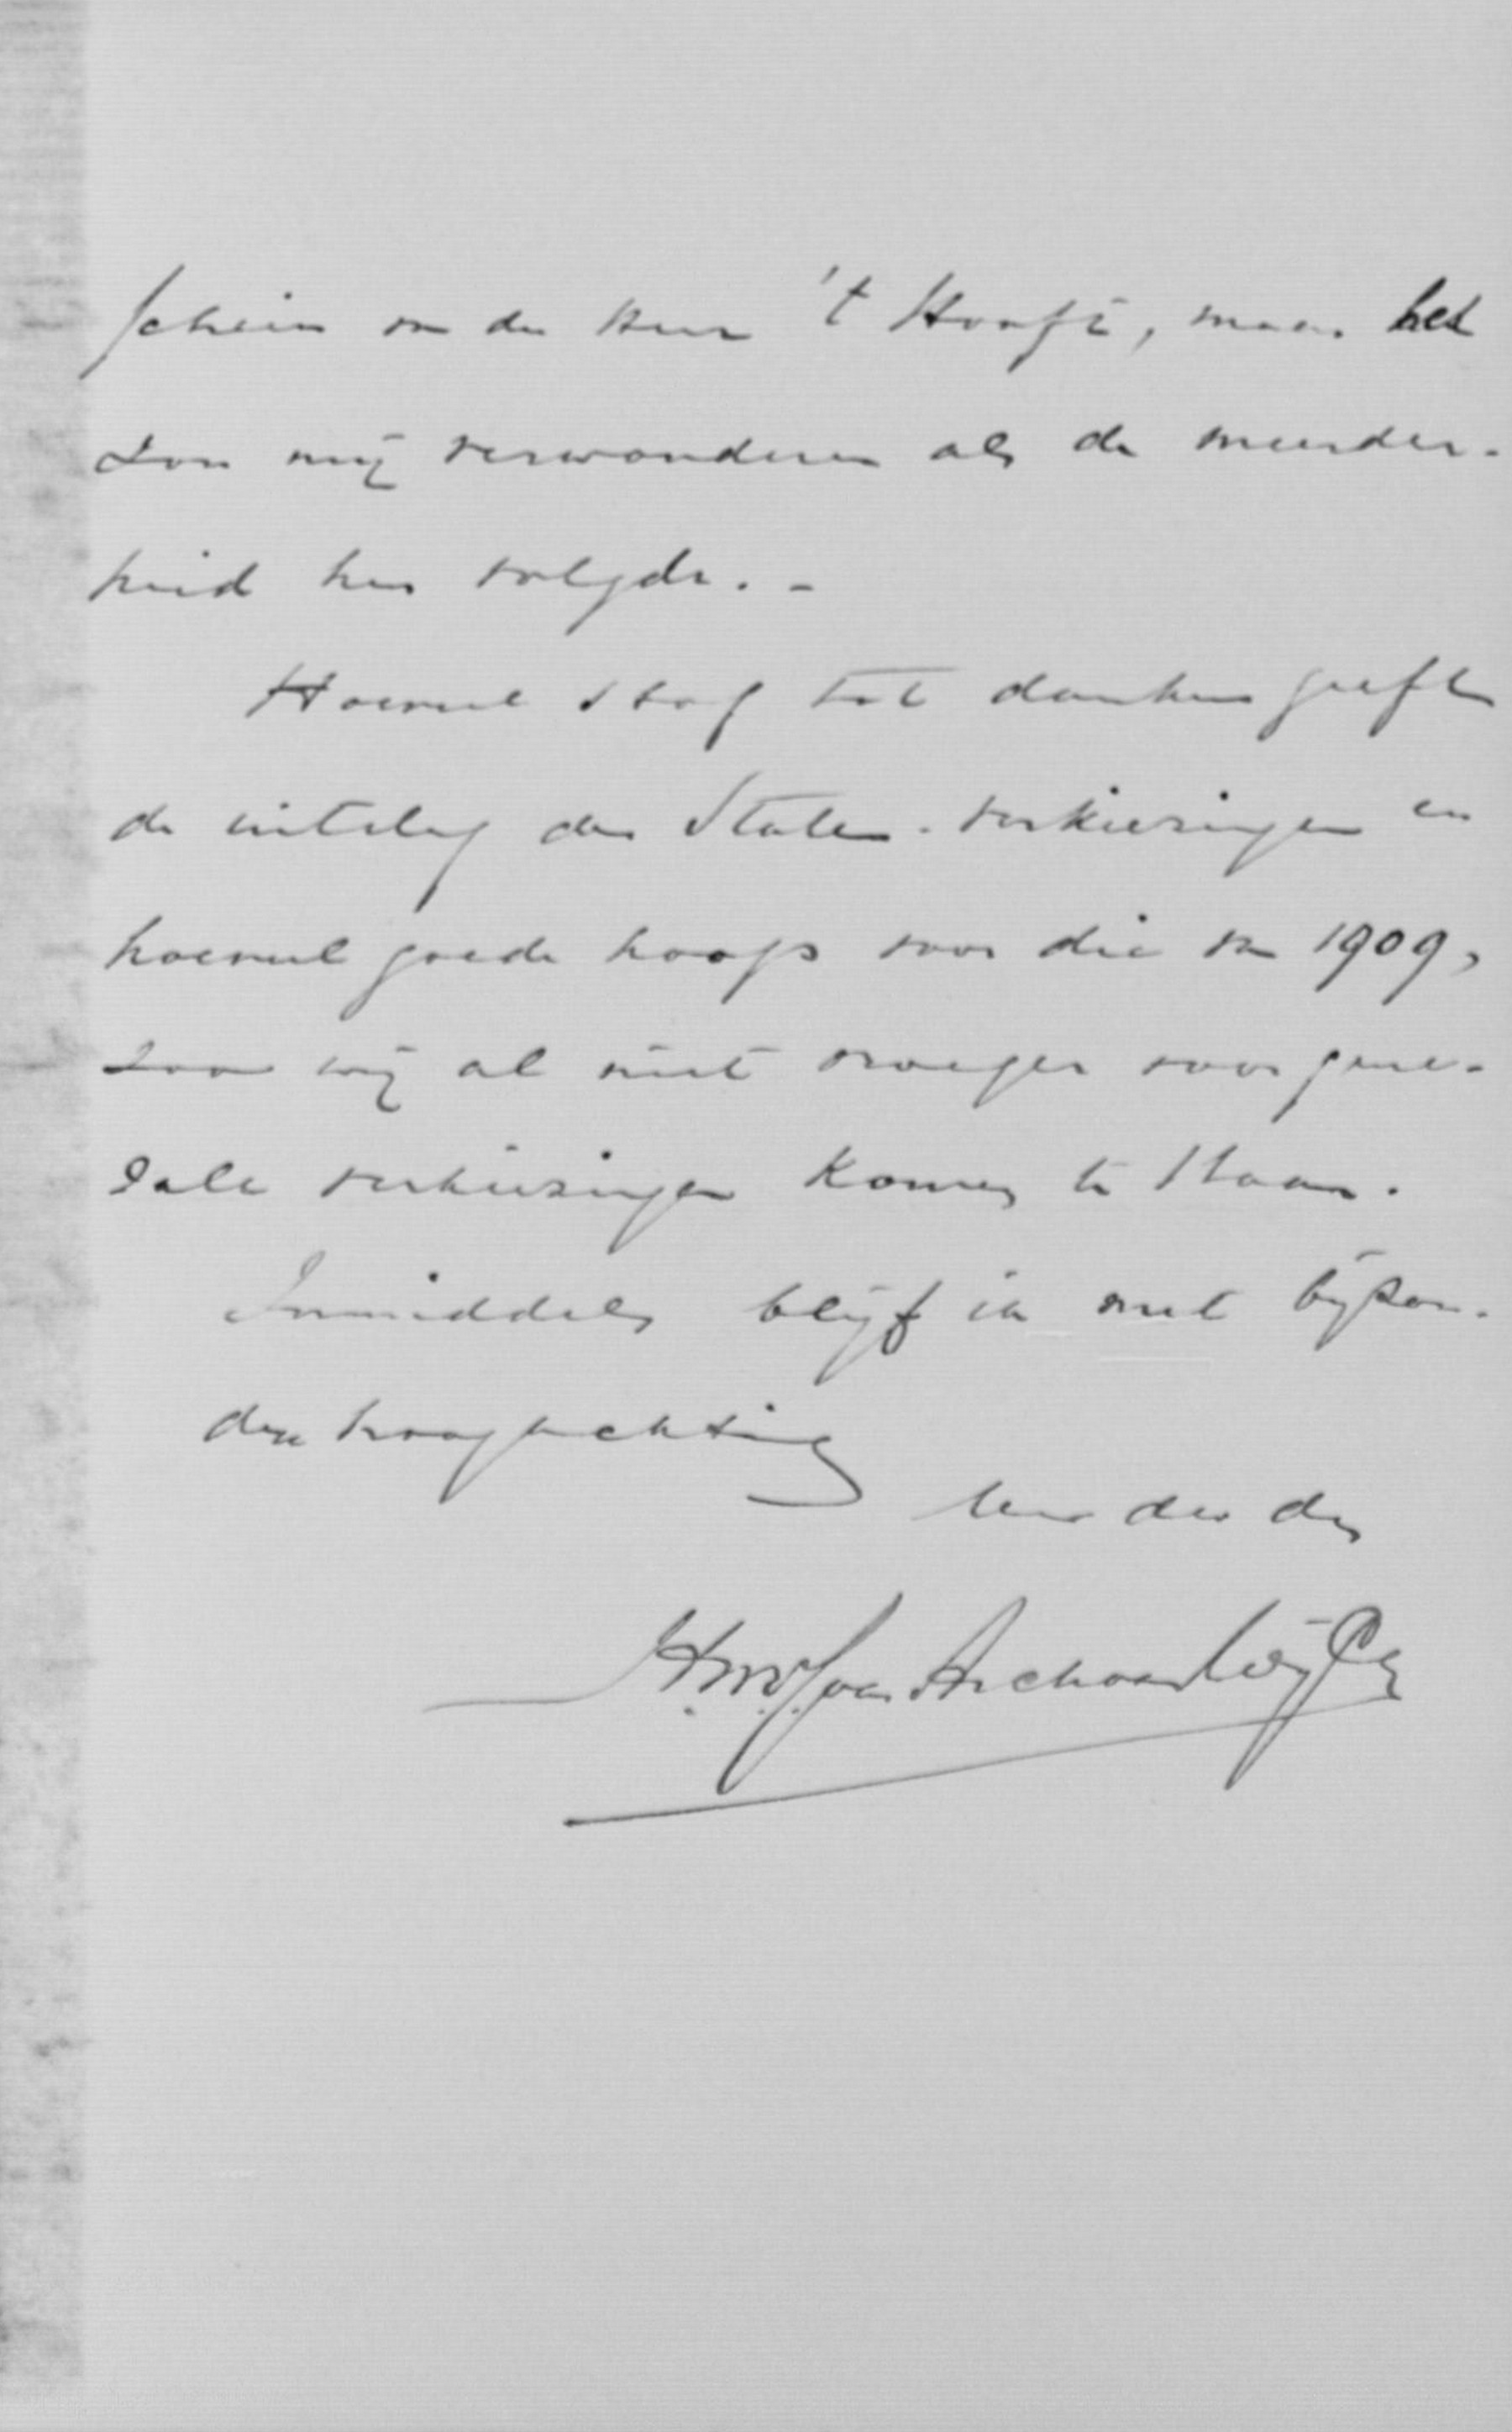 schein van den heer 't Hooft, maar het
zou mij verwonderen als de meerder-
heid hem volgde. -
Hoeveel stof tot danken geeft
de uitslag der Staten-verkiezingen en
hoeveel goede hoop voor die van 1909,
zoo wij al niet vroeger voor gene-
rale verkiezingen komen te staan.
Inmiddels blijf ik met bijzon-
dere hoogachting
Uw dw dr
H.W.J. van Asch van Wijck